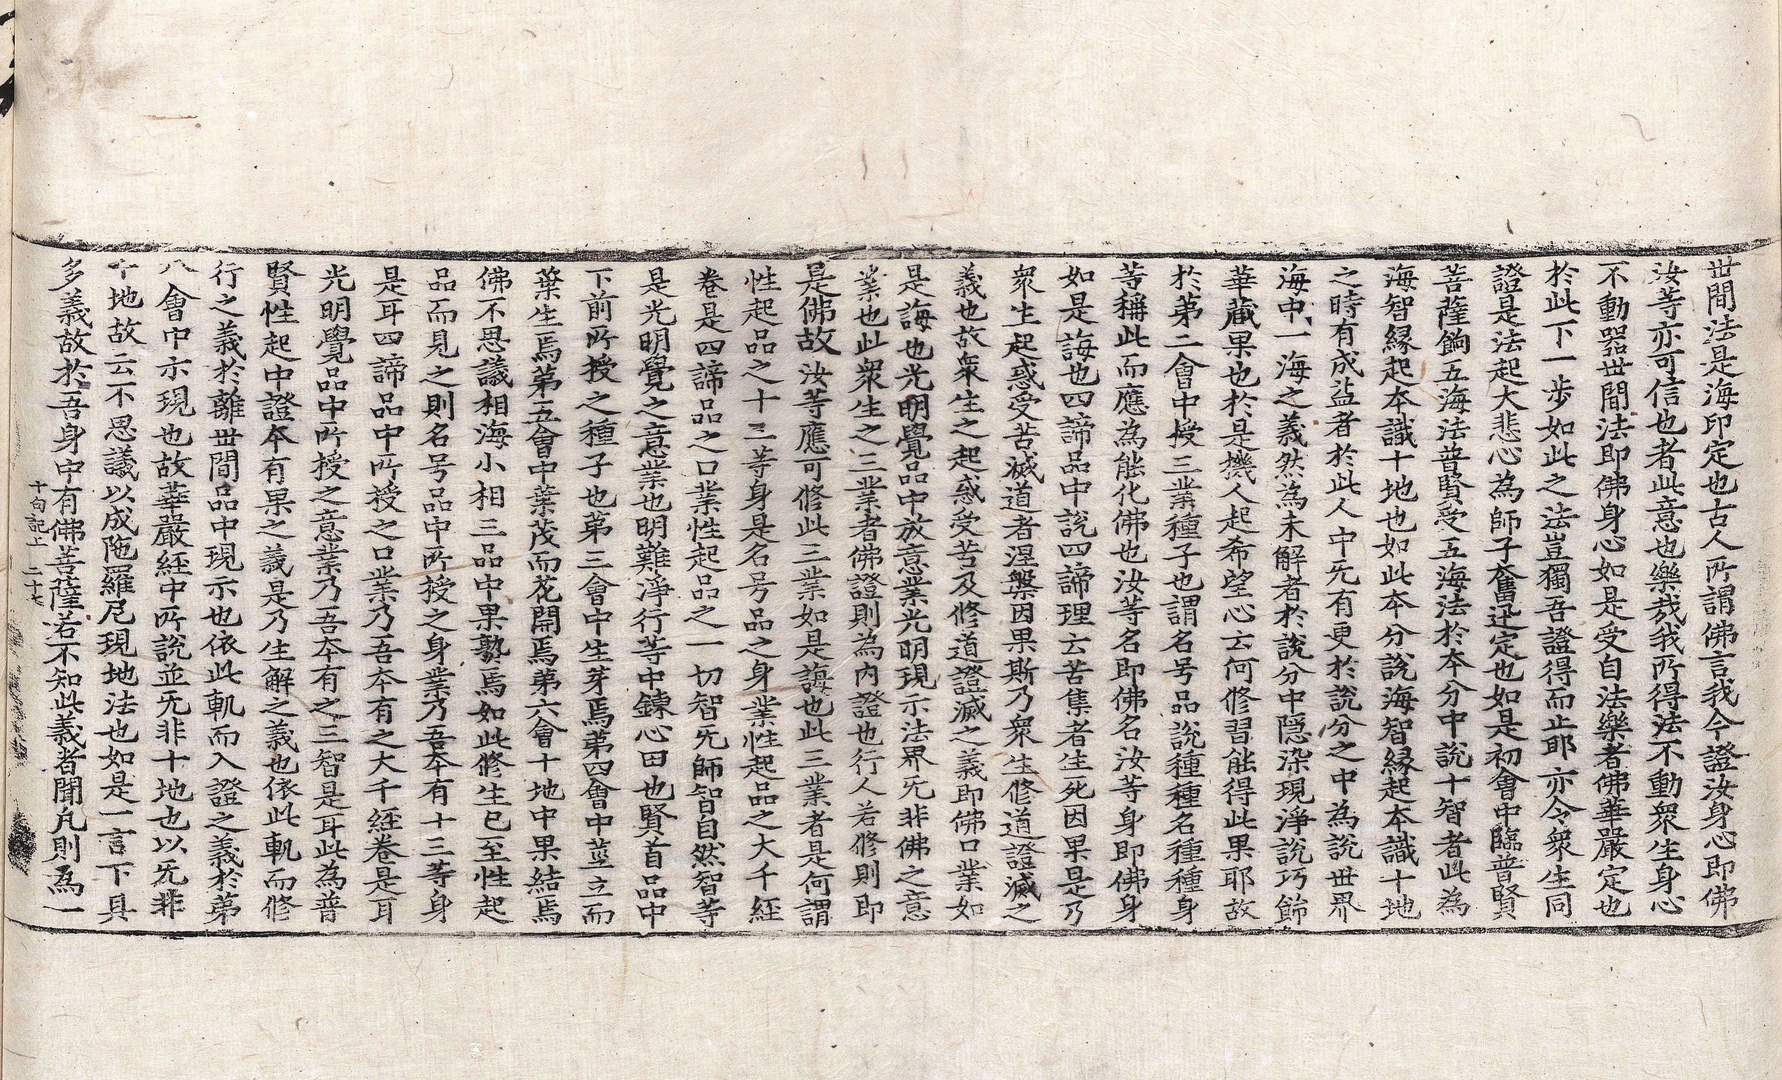 世間法是海印定也古人所謂佛言我今證汝身心即佛
汝等亦可信也者此意也樂我我所得法不動衆生身心
不動器世間法即佛身心如是受自法樂者佛華嚴定也
於此下一步如此之法豈獨吾證得而止耶亦令衆生同
證是法起大悲心為師子奮迅定也如是初會中臨普賢
菩薩餉五海法普賢受五海法於本分中說十智者此為
海智緣起本識十地也如此本分說海智緣起本識十地
之時有成益者於此人中旡有更於說分之中為說世界
海中一海之義然為未解者於說分中隱染現淨說巧餙
華藏果也於是機人起希望心云何修習能得此果耶故
於第二會中授三業種子也謂名号品說種種名種種身
等稱此而應為能化佛也汝等名即佛名汝等身即佛身
如是誨也四諦品中說四諦理云苦集者生死因果是乃
衆生起惑受苦滅道者涅槃因果斯乃衆生修道證滅之
義也故衆生之起惑受苦及修道證滅之義即佛口業如
是誨也光明覺品中放意業光明現示法界旡非佛之意
業也此衆生之三業者佛證則為內證也行人若修則即
是佛故汝等應可修此三業如是誨也此三業者是何謂
性起品之十三等身是名号品之身業性起品之大千經
卷是四諦品之口業性起品之一切智旡師智自然智等
是光明覺之意業也明難淨行等中鍊心田也賢首品中
下前所授之種子也第三會中生芽焉第四會中莖立而
葉生焉第五會中葉茂而花開焉第六會十地中果結焉
佛不思議相海小相三品中果孰焉如此修生已至性起
品而見之則名号品中所授之身業乃吾本有十三等身
是耳四諦品中所授之口業乃吾本有之大千經卷是耳
光明覺品中所授之意業乃吾本有之三智是耳此為普
賢性起中證本有果之義是乃生解之義也依此軌而修
行之義於離世間品中現示也依此軌而入證之義於第
八會中示現也故華嚴経中所說並旡非十地也以旡非
十地故云不思議以成陁羅尼現地法也如是一言下具
多義故於吾身中有佛菩薩若不知此義者聞凡則為一
十句記上 二十七